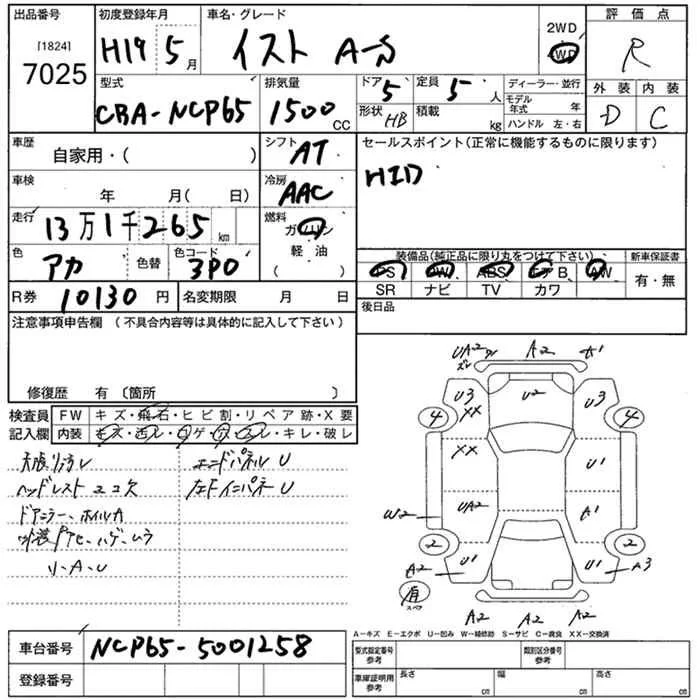 出品番号 初度登録年月 車名・グレード 2WD 評価点
[1824] 7025 H19 5月 イスト A-S 4WD R
型式 排気量 ドア 定員 ディーラー・並行 外装 内装
CBA-NCP65 1500CC 5 5人 モデル年式 年 D C
形状 HB 積載 kg ハンドル 左・右
車歴 シフト セールスポイント(正常に機能するものに限ります)
自家用・( ) AT HID
車検 年 月(日) 冷房 AAC
走行 13万1千265km 燃料 ガソリン
色 アカ 色替 色コード 3P0 軽・油 ( )
装備品(純正品に限り丸をつけて下さい) 新車保証書
PS PW ABS エアB AW 有・無
SR ナビ TV カワ
R券 10130円 名変期限 月 日 後日品
注意事項申告欄(不具合内容等は具体的に記入して下さい)
修復歴 有〔箇所 〕
検査員 FW キズ・飛石・ヒビ割・リペア跡・X要
記入欄 内装 キズ・汚レ・コゲ・穴・スレ・キレ・破レ
エンドパネルU
ヘッドレスト ココ欠 左Fインパネ U
ドアミラー、ホイルカ
小A・U
UA2 A2 A1
U3 U2 U3
XX
4 4
XX U1
UA2 A1
W2
2 2
U1 U1
A2 A3
有 スペア
A2 A2 A2
A-キズ E-エクボ U-凹み W-補修跡 S-サビ C-腐食 XX-交換済
車台番号 NCP65-5001258 型式指定番号 参考 類別区分番号 参考
登録番号 車庫証明用 参考 長さ cm 幅 cm 高さ cm